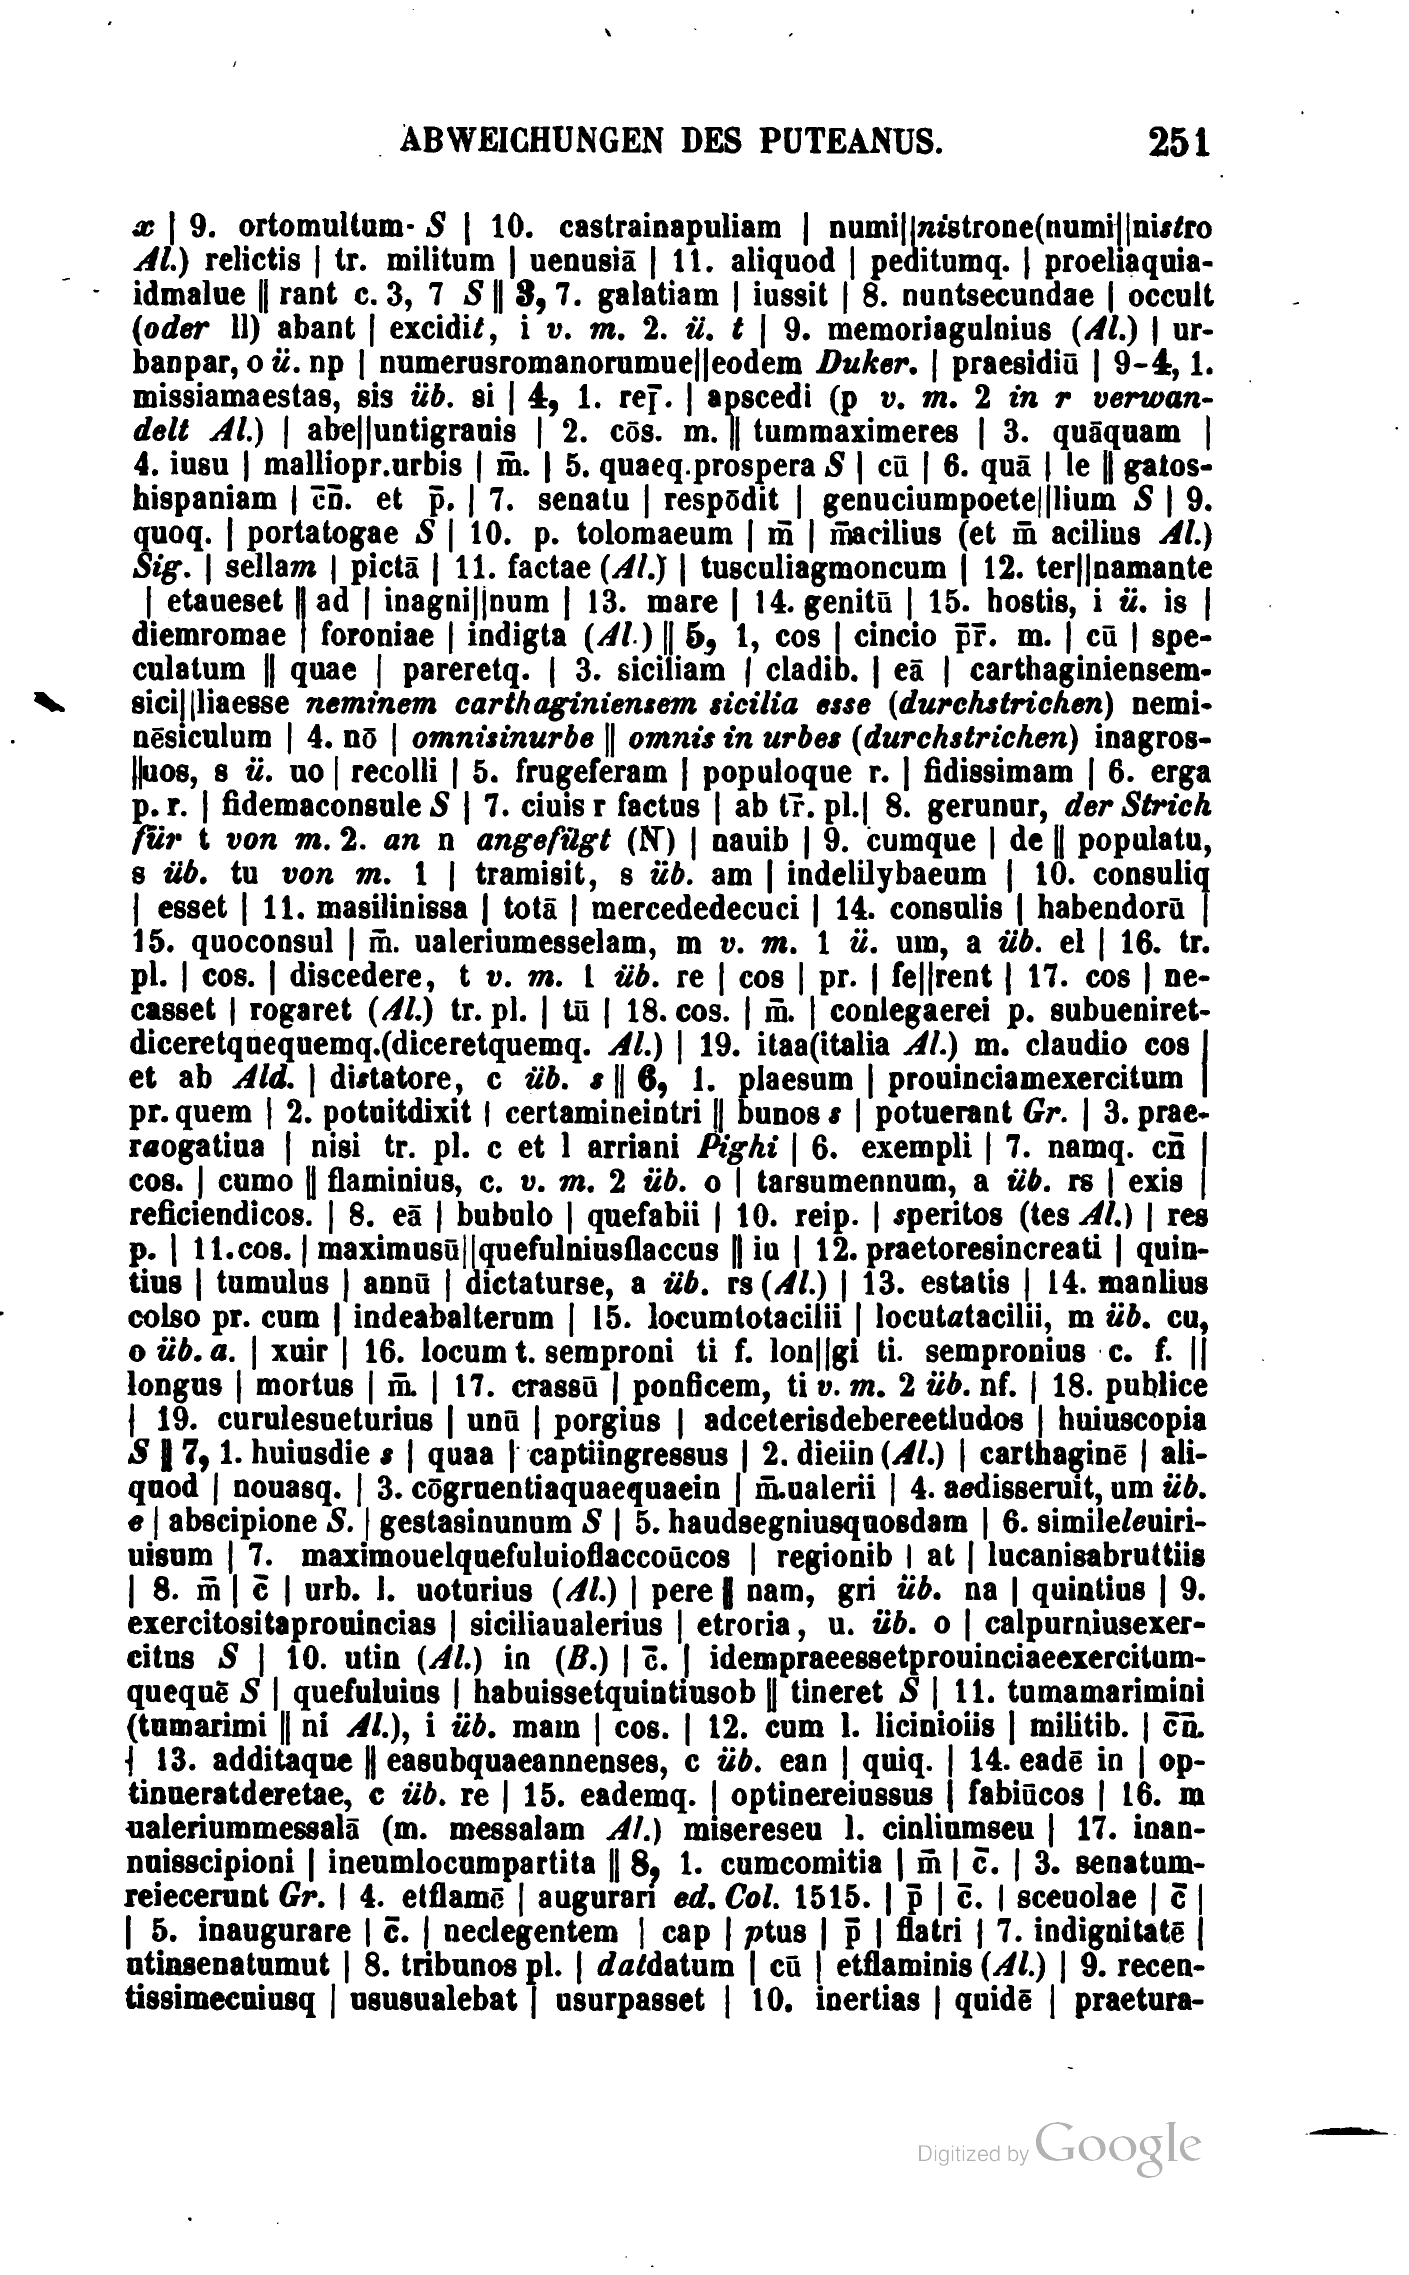 ABWEICHUNGEN DES PUTEANUS. 251
x | 9. ortomultum· S | 10. castrainapuliam | numi||nistrone(numi||nistro
Al.) relictis | tr. militum | uenusiā | 11. aliquod | peditumq. | proeliaquia-
idmalue || rant c. 3, 7 S || 3, 7. galatiam | iussit | 8. nuntsecundae | occult
(oder ll) abant | excidit, i v. m. 2. ü. t | 9. memoriagulnius (Al.) | ur-
banpar, o ü. np | numerusromanorumue||eodem Duker. | praesidiū | 9-4, 1.
missiamaestas, sis üb. si | 4, 1. ref̄. | apscedi (p v. m. 2 in r verwan-
delt Al.) | abe||untigrauis | 2. cōs. m. || tummaximeres | 3. quāquam |
4. iusu | malliopr.urbis | m̄. | 5. quaeq.prospera S | cū | 6. quā | le || gatos-
hispaniam | c̄n̄. et p̄. | 7. senatu | respōdit | genuciumpoete||lium S | 9.
quoq. | portatogae S | 10. p. tolomaeum | m̄ | m̄acilius (et m̄ acilius Al.)
Sig. | sellam | pictā | 11. factae (Al.) | tusculiagmoncum | 12. ter||namante
| etaueset || ad | inagni||num | 13. mare | 14. genitū | 15. hostis, i ü. is |
diemromae | foroniae | indigta (Al.) || 5, 1, cos | cincio p̄r̄. m. | cū | spe-
culatum || quae | pareretq. | 3. siciliam | cladib. | eā | carthaginiensem-
sici||liaesse neminem carthaginiensem sicilia esse (durchstrichen) nemi-
nēsiculum | 4. nō | omnisinurbe || omnis in urbes (durchstrichen) inagros-
||uos, s ü. uo | recolli | 5. frugeferam | populoque r. | fidissimam | 6. erga
p. r. | fidemaconsule S | 7. ciuis r factus | ab tr̄. pl.| 8. gerunur, der Strich
für t von m. 2. an n angefügt (N) | nauib | 9. cumque | de || populatu,
s üb. tu von m. 1 | tramisit, s üb. am | indelilybaeum | 10. consuliq
| esset | 11. masilinissa | totā | mercededecuci | 14. consulis | habendorū |
15. quoconsul | m̄. ualeriumesselam, m v. m. 1 ü. um, a üb. el | 16. tr.
pl. | cos. | discedere, t v. m. 1 üb. re | cos | pr. | fe||rent | 17. cos | ne-
casset | rogaret (Al.) tr. pl. | tū | 18. cos. | m̄. | conlegaerei p. subueniret-
diceretquequemq.(diceretquemq. Al.) | 19. itaa(italia Al.) m. claudio cos |
et ab Ald. | distatore, c üb. s || 6, 1. plaesum | prouinciamexercitum |
pr. quem | 2. potuitdixit | certamineintri || bunos s | potuerant Gr. | 3. prae-
raogatiua | nisi tr. pl. c et l arriani Pighi | 6. exempli | 7. namq. cn̄ |
cos. | cumo || flaminius, c. v. m. 2 üb. o | tarsumennum, a üb. rs | exis |
reficiendicos. | 8. eā | bubulo | quefabii | 10. reip. | speritos (tes Al.) | res
p. | 11.cos. | maximusū||quefulniusflaccus || iu | 12. praetoresincreati | quin-
tius | tumulus | annū | dictaturse, a üb. rs (Al.) | 13. estatis | 14. manlius
colso pr. cum | indeabalterum | 15. locumtotacilii | locutatacilii, m üb. cu,
o üb. a. | xuir | 16. locum t. semproni ti f. lon||gi ti. sempronius c. f. ||
longus | mortus | m̄. | 17. crassū | ponficem, ti v. m. 2 üb. nf. | 18. publice
| 19. curulesueturius | unū | porgius | adceterisdebereetludos | huiuscopia
S || 7, 1. huiusdie s | quaa | captiingressus | 2. dieiin (Al.) | carthaginē | ali-
quod | nouasq. | 3. cōgruentiaquaequaein | m̄.ualerii | 4. aedisseruit, um üb.
e | abscipione S. | gestasinunum S | 5. haudsegniusquosdam | 6. simileleuiri-
uisum | 7. maximouelquefuluioflaccoūcos | regionib | at | lucanisabruttiis
| 8. m̄ | c̄ | urb. l. uoturius (Al.) | pere || nam, gri üb. na | quintius | 9.
exercitositaprouincias | siciliaualerius | etroria, u. üb. o | calpurniusexer-
citus S | 10. utin (Al.) in (B.) | c̄. | idempraeessetprouinciaeexercitum-
quequē S | quefuluius | habuissetquintiusob || tineret S | 11. tumamarimini
(tumarimi || ni Al.), i üb. mam | cos. | 12. cum l. licinioiis | militib. | c̄n̄.
| 13. additaque || easubquaeannenses, c üb. ean | quiq. | 14. eadē in | op-
tinueratderetae, c üb. re | 15. eademq. | optinereiussus | fabiūcos | 16. m
ualeriummessalā (m. messalam Al.) misereseu l. cinliumseu | 17. inan-
nuisscipioni | ineumlocumpartita || 8, 1. cumcomitia | m̄ | c̄. | 3. senatum-
reiecerunt Gr. | 4. etflamē | augurari ed. Col. 1515. | p̄ | c̄. | sceuolae | c̄ |
| 5. inaugurare | c̄. | neclegentem | cap | ptus | p̄ | flatri | 7. indignitatē |
utinsenatumut | 8. tribunos pl. | datdatum | cū | etflaminis (Al.) | 9. recen-
tissimecuiusq | ususualebat | usurpasset | 10. inertias | quidē | praetura-
Digitized by Google